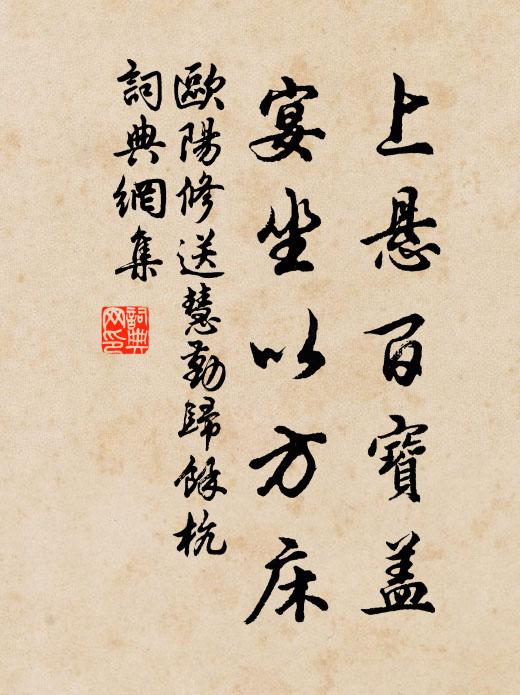 上悬百寶盖
宴坐以方床
歐陽修送慧勤歸餘杭
詞典網集
詞典網印